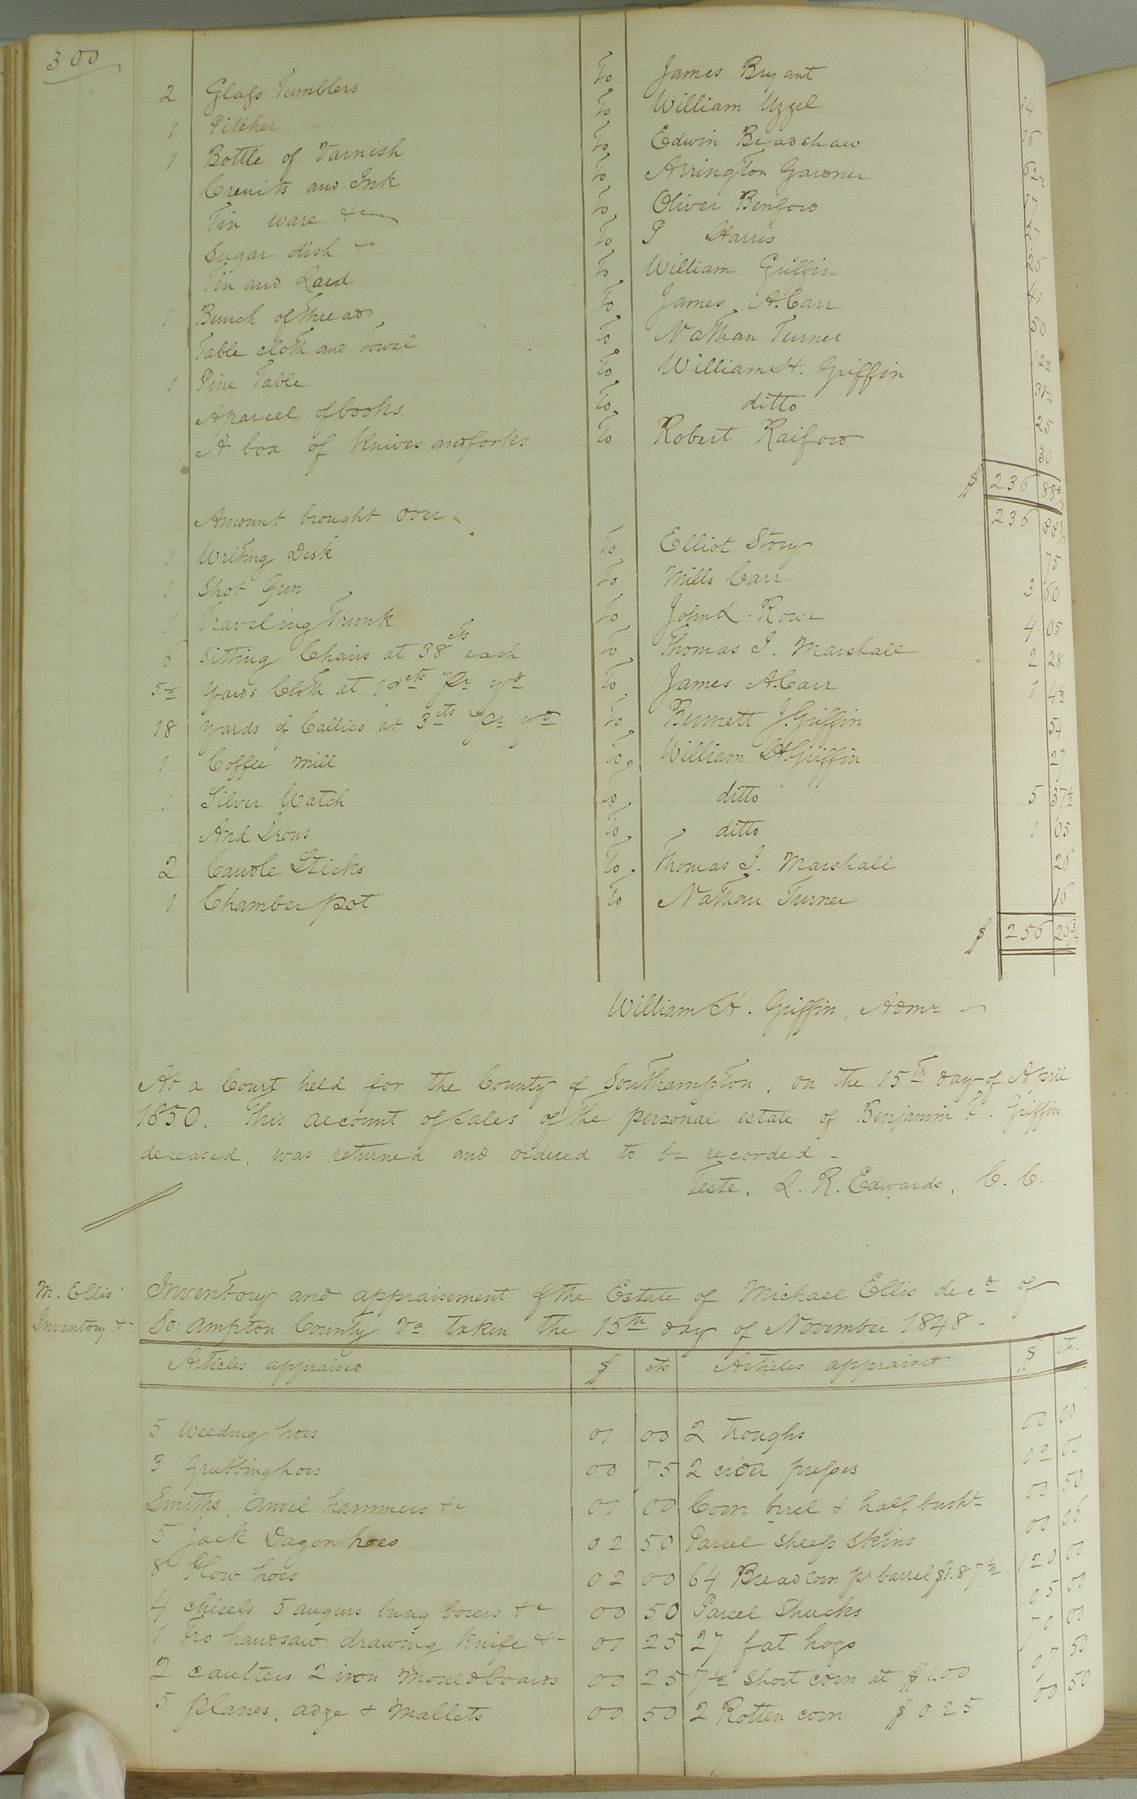 300
2 Glass Tumblers To James Bryant 14
1 Pitcher To William Uzzel 16
1 Bottle of Varnish To Edwin Bradshaw 62½
Cruits and Ink To Arrington Gardner
Tin ware &c To Oliver Benford
Sugar dish &c To P Harris 26
Tin and Lard To William Griffin 41
1 Bunch of Thread To James A. Carr 50
Table cloth and Towel To Nathan Turner 12½
1 Pine Table To William H. Griffin 31¼
A parcel of books To ditto 25
A box of Knives and forks To Robert Raiford 30
$ 236 88¾
Amount brought over 236 88¾
1 Writing Desk To Elliot Story 75
1 Shot Gun To Mills Carr 3 60
1 Traveling Trunk To John L. Rowe 4 05
6 Sitting Chairs at 38 cts each To Thomas J. Marshall 2 28
5½ Yards Cloth at 19 cts Pr yd To James A. Carr 1 4½
18 Yards of Callico at 3 cts Pr yd To Bennett J. Griffin 54
1 Coffee Mill To William H. Griffin 27
1 Silver Watch To ditto 5 37½
And Irons To ditto 1 05
2 Candle Sticks To Thomas J. Marshall 26
1 Chamber pot To Nathan Turner 16
$ 256 26¾
William H. Griffin, Admr
At a Court held for the County of Southampton, on the 15th day of April
1850. This account of sales of the personal estate of Benjamin F. Griffin
deceased, was returned and ordered to be recorded -
Teste, L. R. Edwards, C. C.
M. Ellis Inventory and appraisement of the Estate of Michael Ellis decd of
Inventory &c So: ampton County Va taken the 15th day of November 1848 -
Articles appraised $ cts Articles appraised $ cts.
5 Weeding hoes 01 00 2 Troughs 00 06
3 Grubbing hoes 00 75 2 cider presses 02 00
Smiths, anvil hammers &c 01 00 Corn barrel & half busht 00 50
5 Jack Dagon hoes 02 50 Parcel Sheep Skins 00 06
8 Plow hoes 02 00 64 Bread Corn pr barrel $1.87½ 120 00
4 Chisels 5 augurs bung borers &c 00 50 Parcel Shucks 05 00
1 Fro handsaw drawing knife &c 01 25 27 fat hogs 70 00
2 caulters 2 iron mouldboards 00 25 7½ Short corn at $1.00 07 50
5 planes, adze & Mallets 00 50 2 Rotten corn $ 0 25 00 50